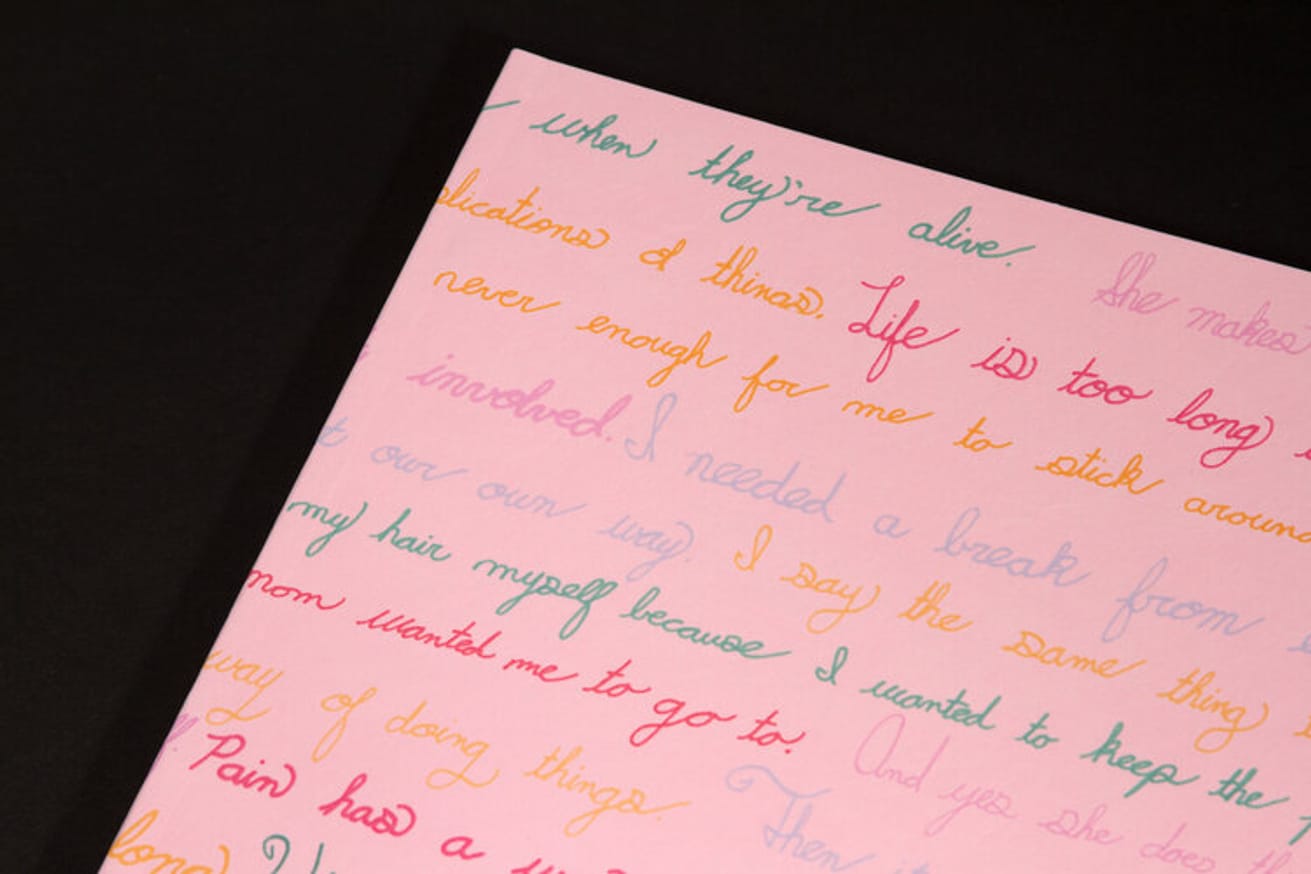 when they're alive. She makes
of things. Life is too long
never enough for me to stick around
involved. I needed a break from
our own way. I say the same thing
my hair myself because I wanted to keep the
mom wanted me to go to. And yes she does
way of doing things. Then
Pain has a
long